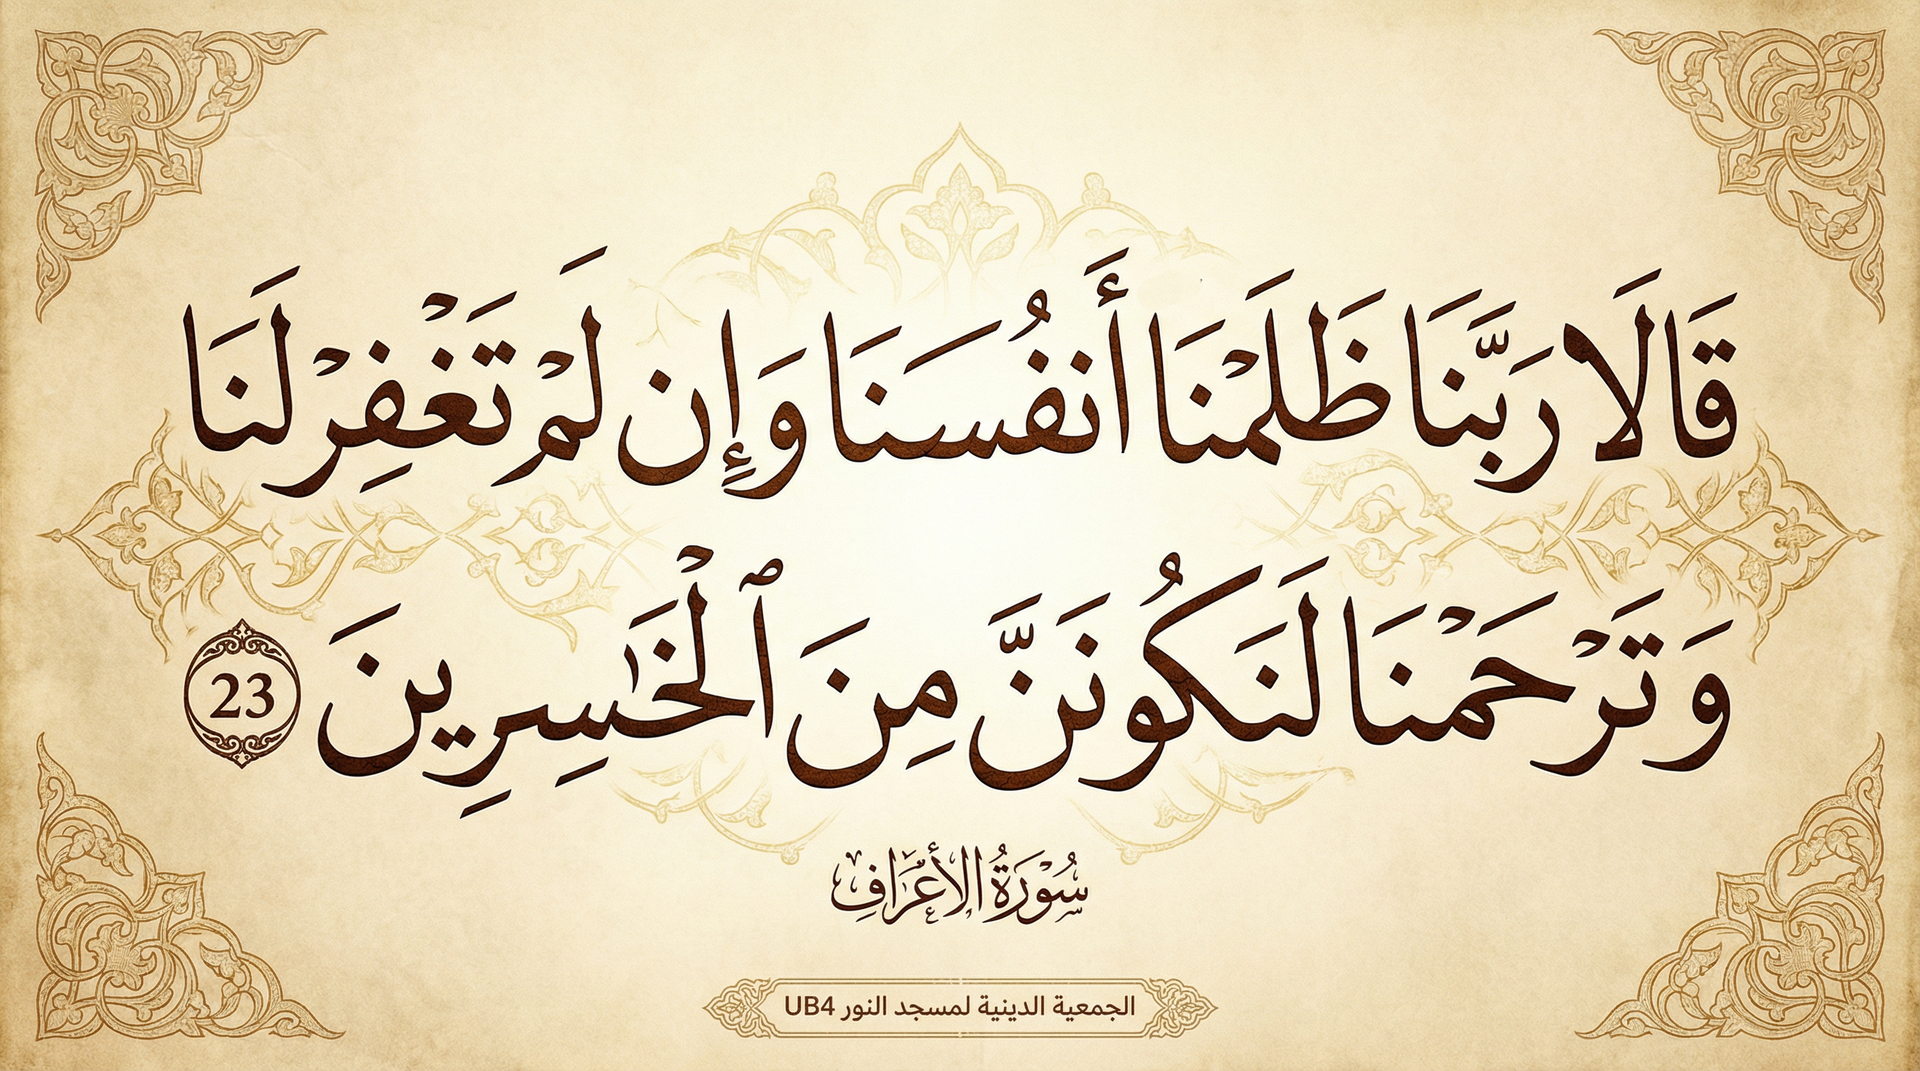 قَالَا رَبَّنَا ظَلَمْنَا أَنفُسَنَا وَإِن لَمْ تَغْفِرْ لَنَا
وَتَرْحَمْنَا لَنَكُونَنَّ مِنَ ٱلْخَٰسِرِينَ 23
سُورَةُ الأَعْرَافِ
الجمعية الدينية لمسجد النور UB4